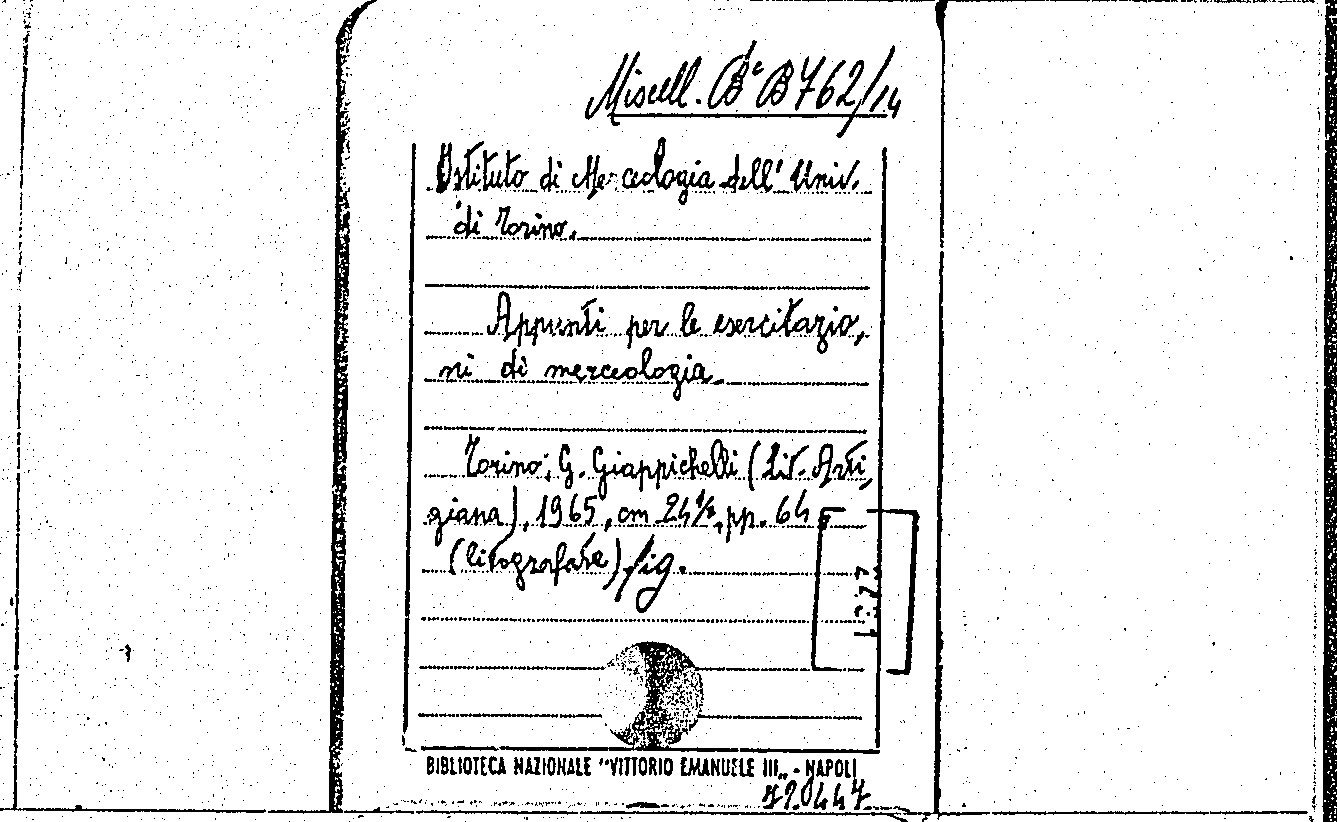 Miscell. Bª B 762/14
Istituto di Merceologia dell' Univ.
di Torino.
Appunti per le esercitazio,
ni di merceologia.
Torino, G. Giappichelli (Lit. Arti,
giana), 1965, cm 24½, pp. 64
(litografate) fig.
BIBLIOTECA NAZIONALE "VITTORIO EMANUELE III„ - NAPOLI
720447